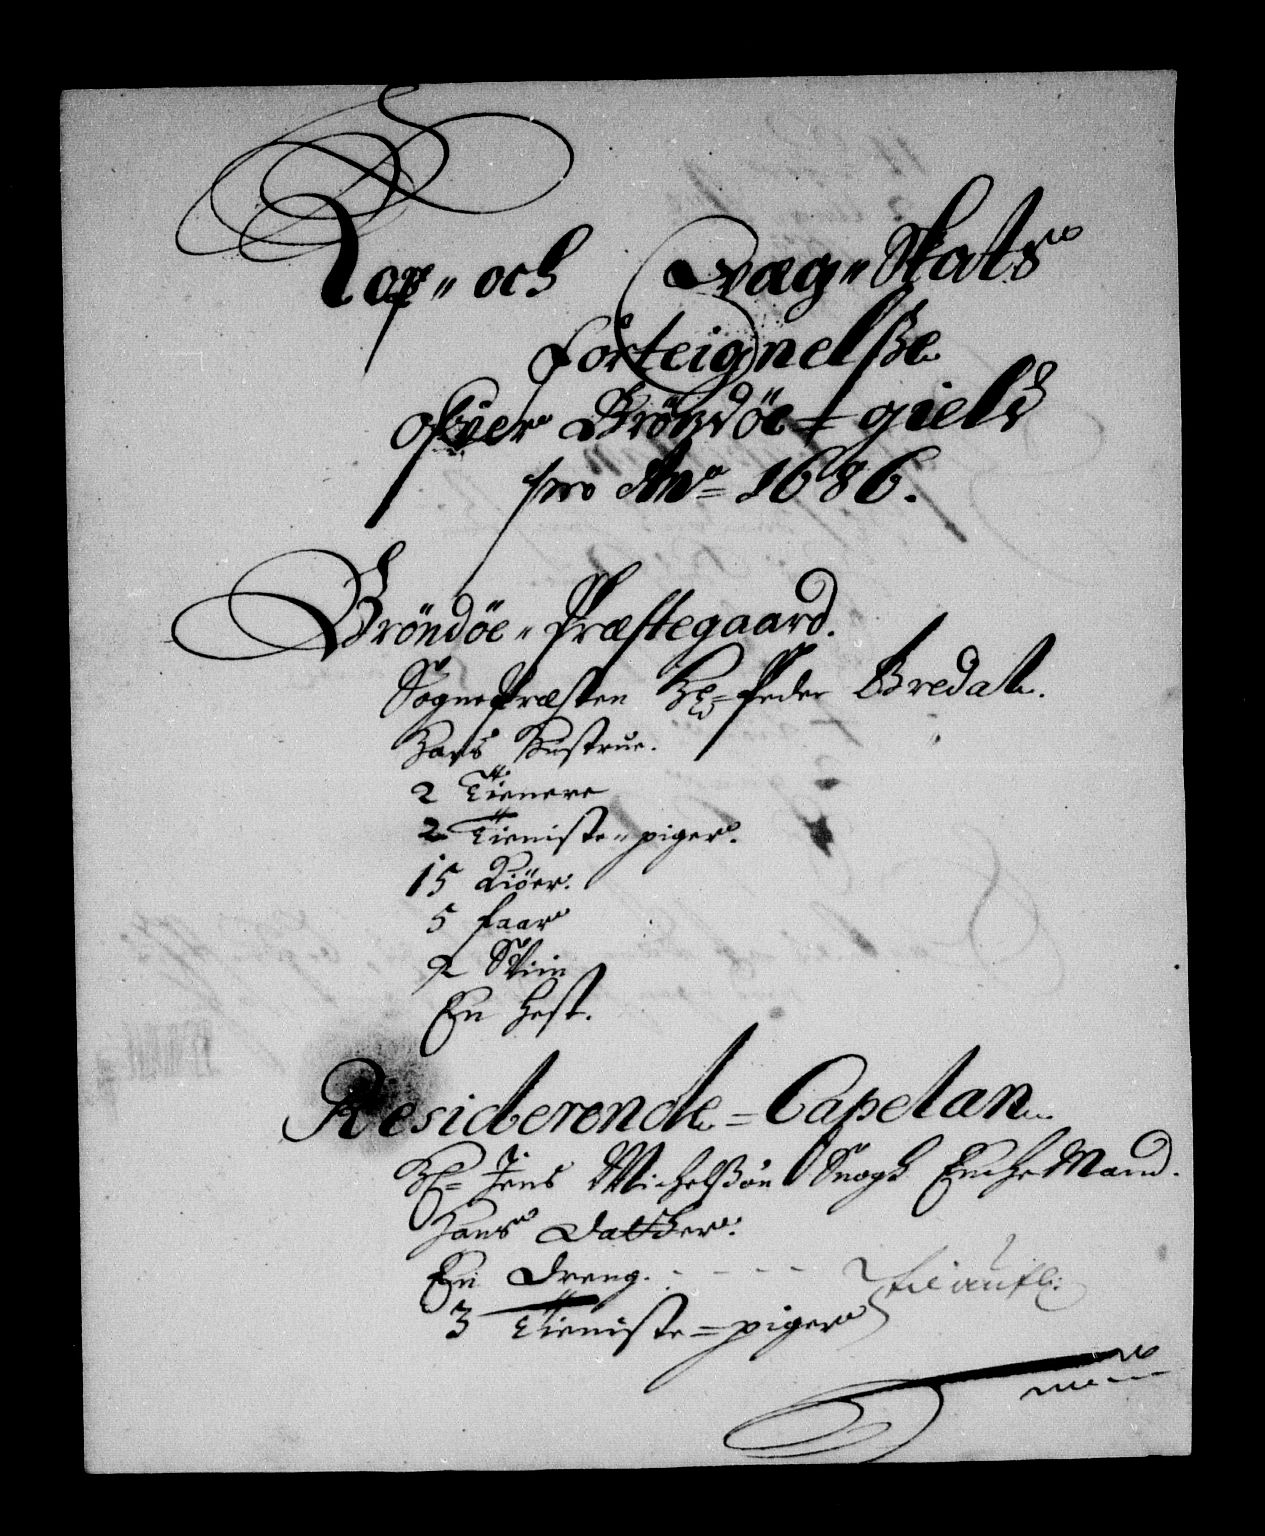 Kop- och Qvæg-Skats
Forteignelße
ofver Brönöe = gield
pro Ano 1686.
Bröndöe-Præstegaard.
Sognepræsten Hr= Peder Bredal.
Hans Hustrue.
2 Tienere
2 Tieniste-piger.
15 Kiöer.
5 faar
2 Sviin
En Hest.
Residerende = Capelan
Hr= Jens Michelßön Snogh Enche Mand.
Hans Datter.
En Dreng. - - - -
3 Tieniste=piger